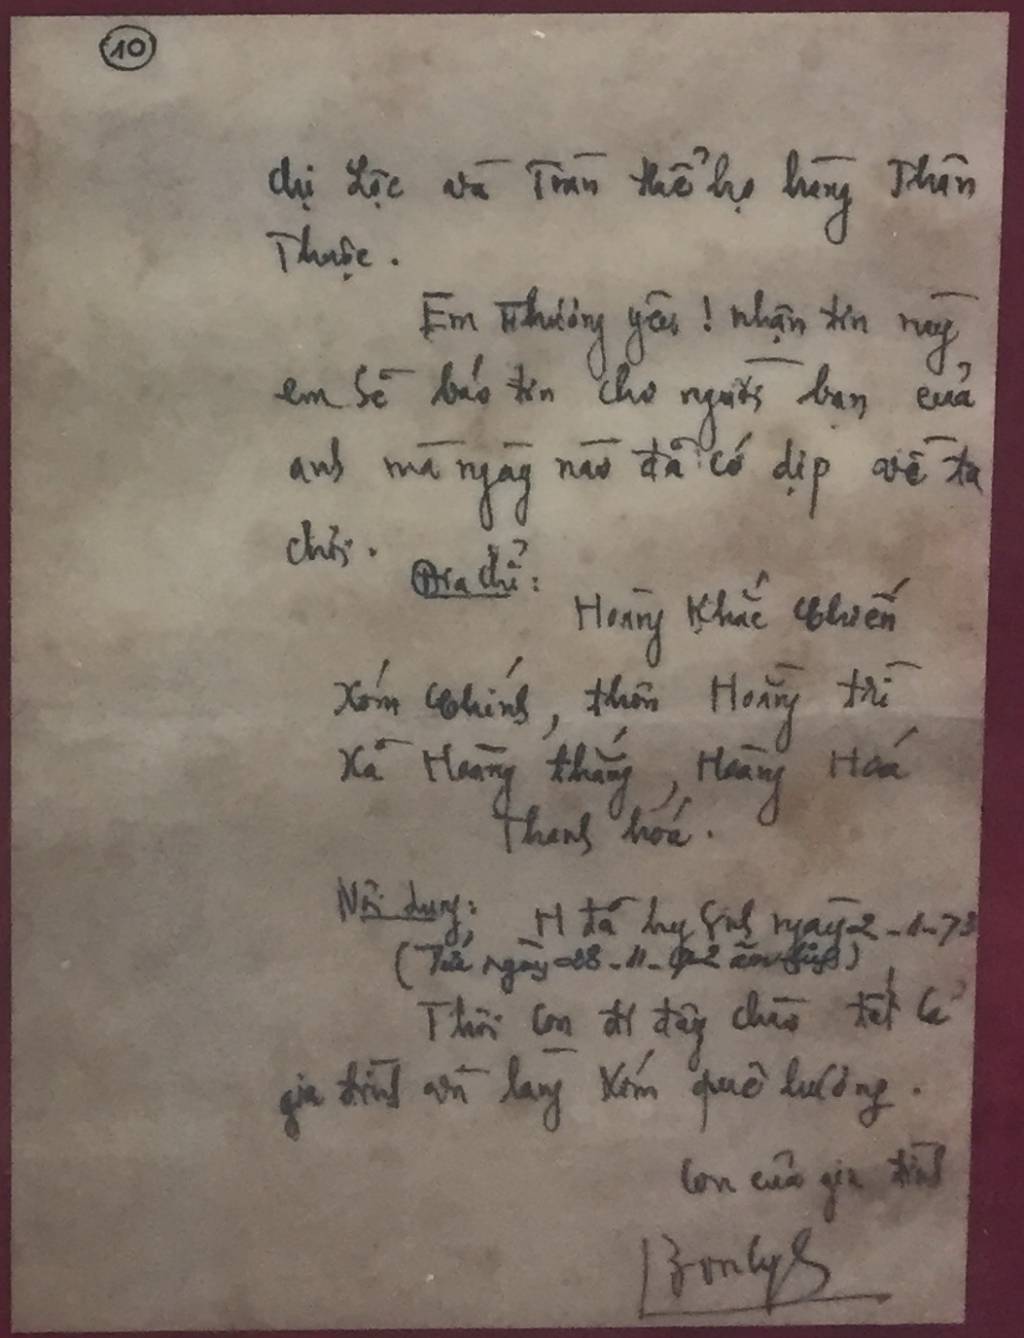 10
chị Lộc và Toàn thể họ hàng Thân
Thuộc.
Em Thương yêu! nhận tin này
em sẽ báo tin cho người bạn của
anh mà ngày nào đã có dịp về ta
chơi.
Địa chỉ:
Hoàng Khắc Chiến
Xóm Chính, thôn Hoằng trì
Xã Hoằng thắng, Hoằng Hoá
Thanh hóa.
Nội dung: H đã hy sinh ngày 2-1-73
(Tức ngày 28-11-72 âm lịch)
Thôi con đi đây chào tất cả
gia đình và làng xóm quê hương.
Con của gia đình